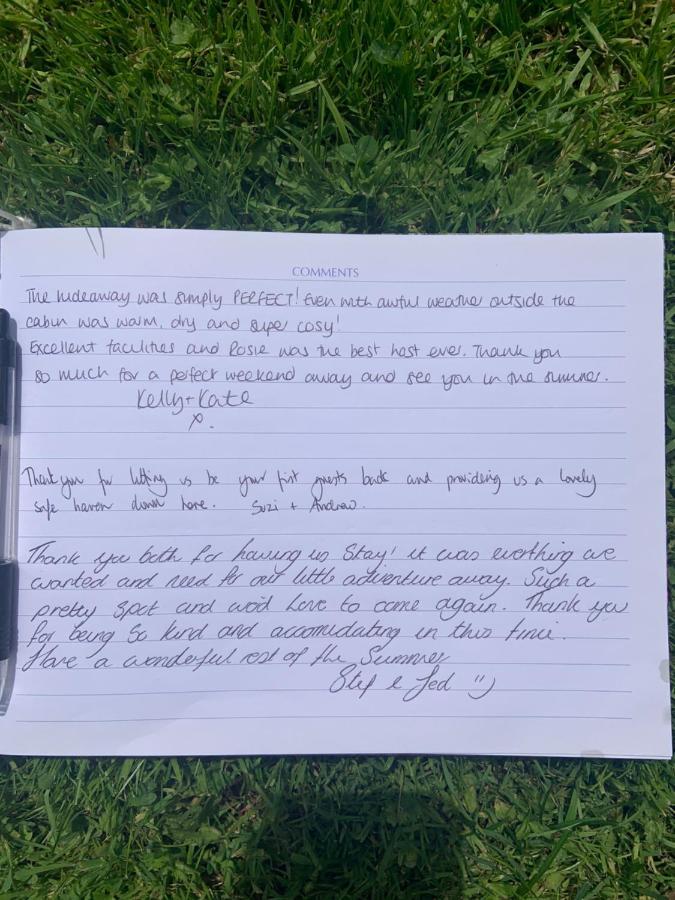 COMMENTS
The hideaway was simply PERFECT! Even with awful weather outside the
cabin was warm, dry and super cosy!
Excellent facilities and Rosie was the best host ever. Thank you
so much for a perfect weekend away and see you in the summer.
Kelly + Kate
x.
Thank you for letting us be your first guests back and providing us a lovely
safe haven down here. Suzi + Andrew.
Thank you both for having us Stay! it was everthing we
wanted and need for our little adventure away. Such a
pretty spot and wo'd Love to come again. Thank you
for being so kind and accomidating in this time.
Have a wonderful rest of the Summer
Stef & Jed :)